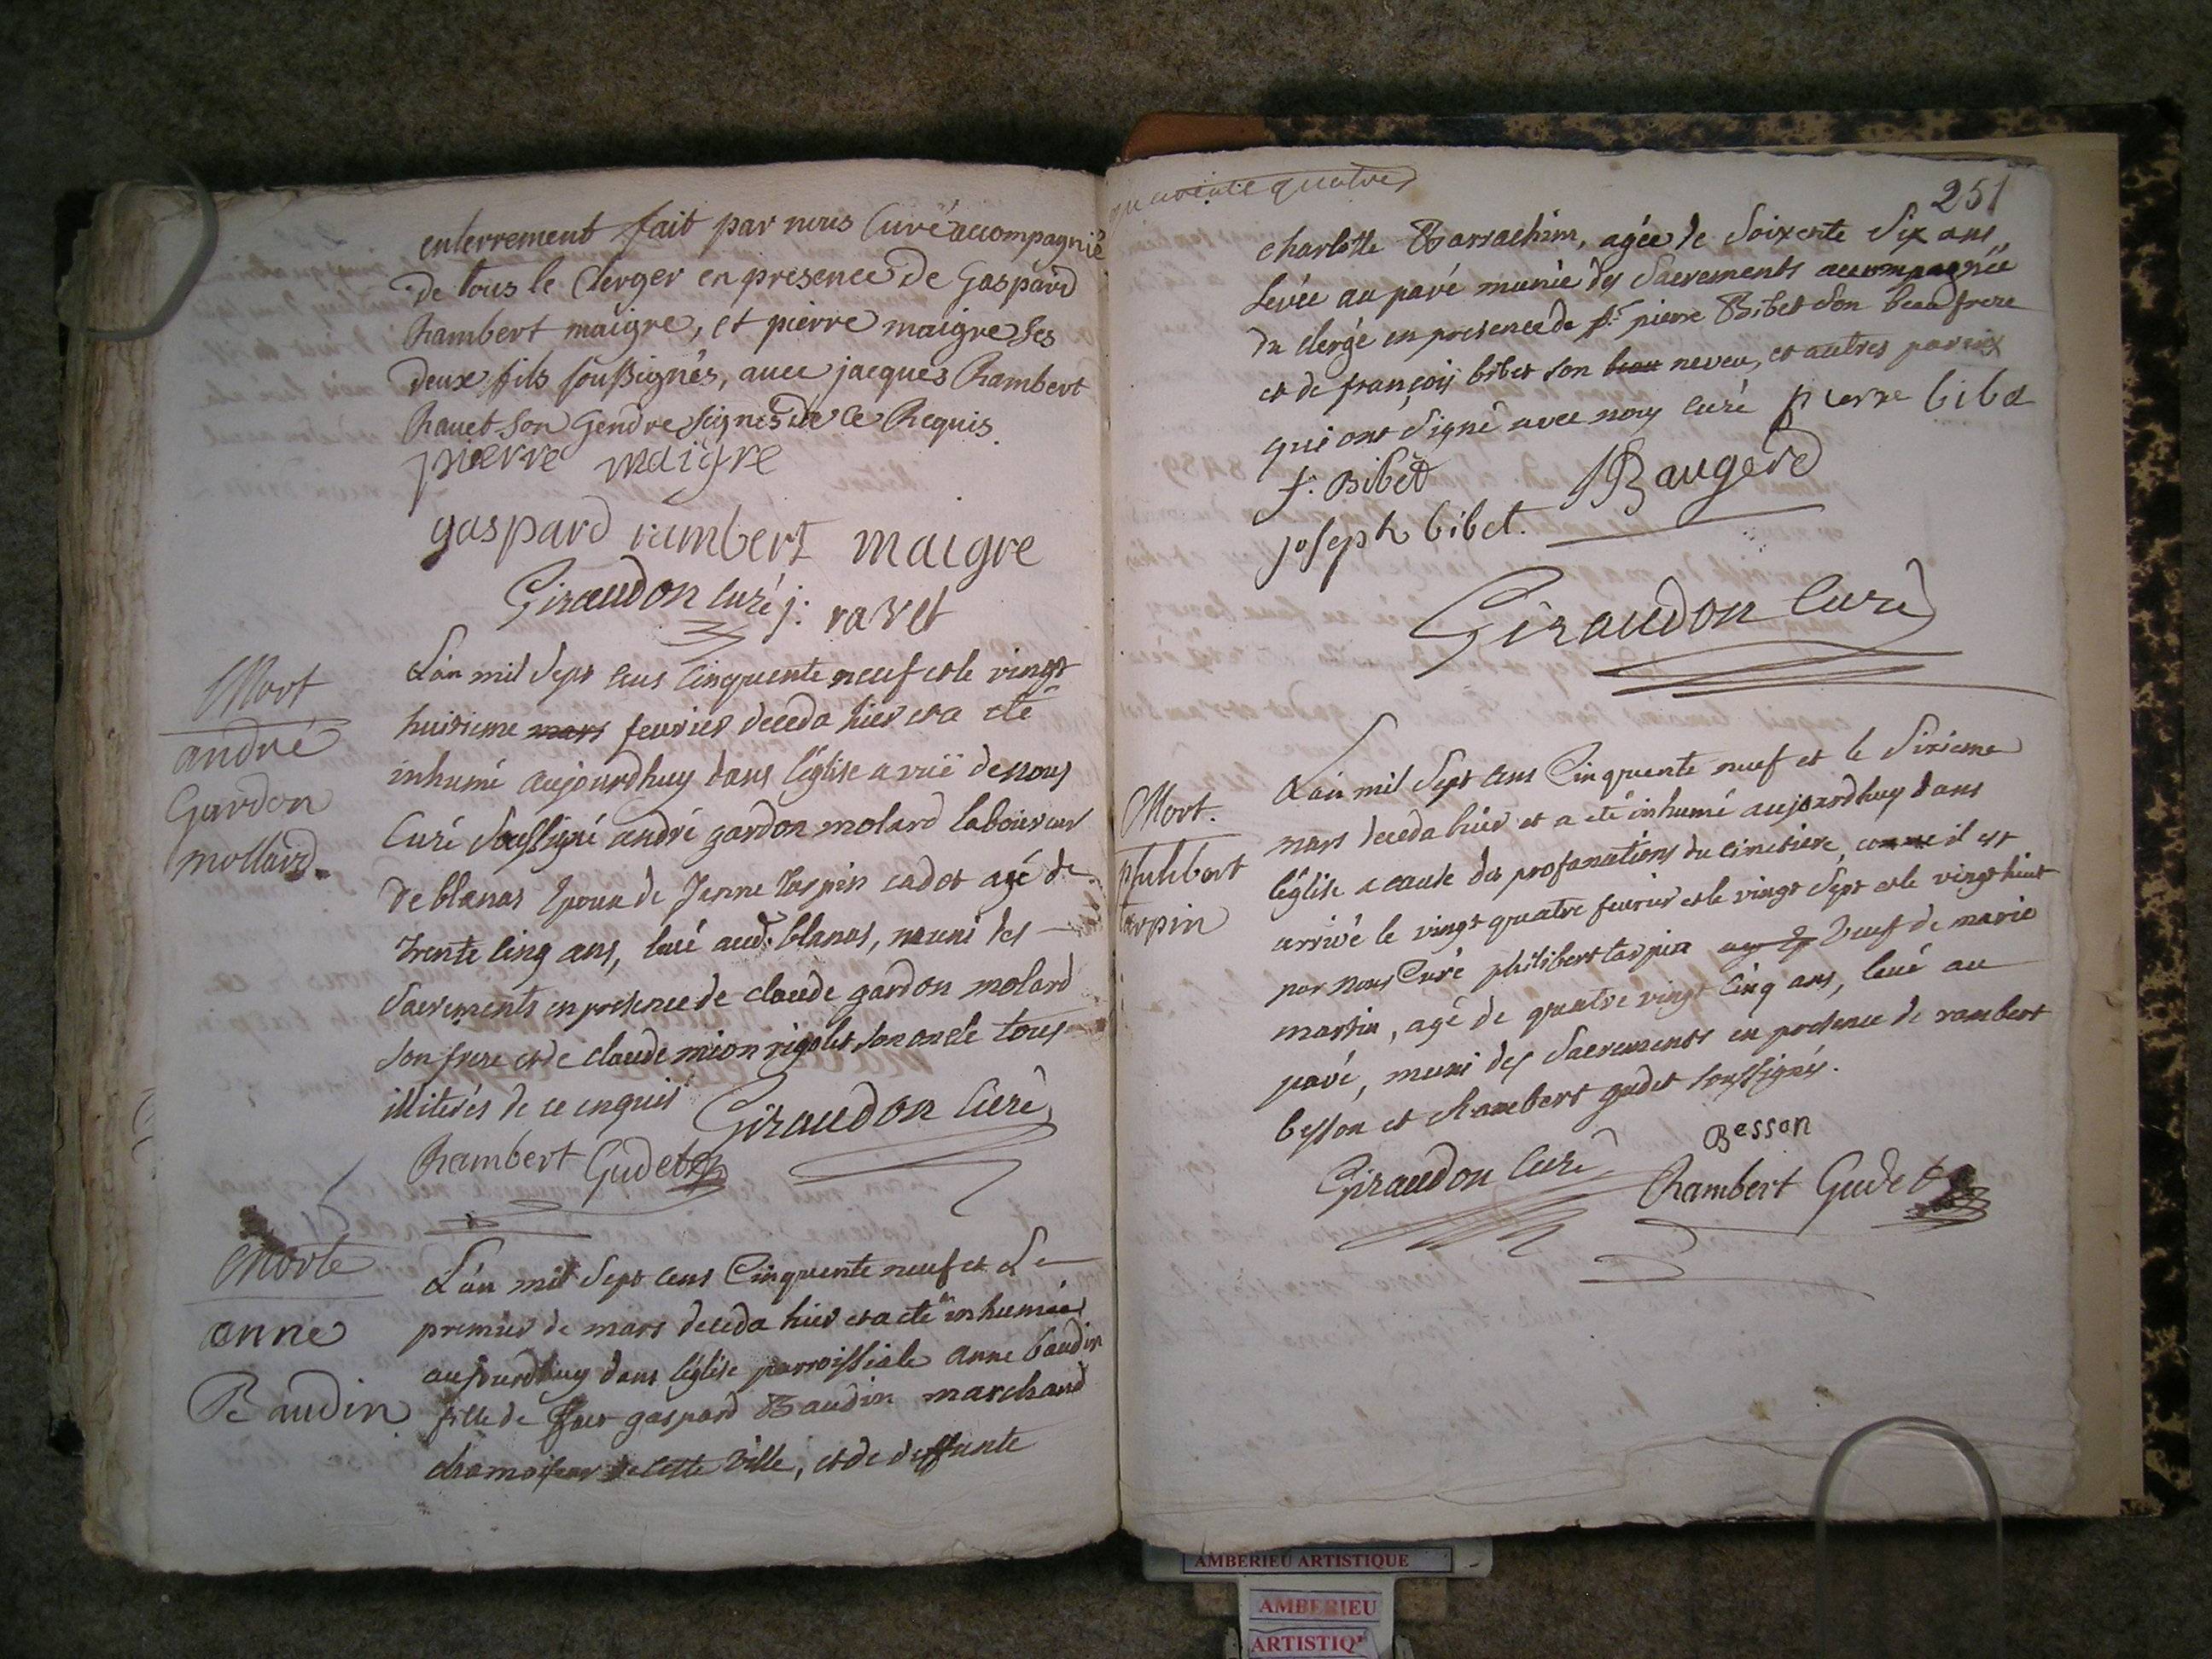 enterrement fait par nous Curé accompagnié
de tous le Clerger en presence de Gaspard
Rambert maigre, et pierre maigre ses
deux fils soussignés, avec jacques Rambert
Ravet son Gendre signés de ce Requis.
pierre maigre
gaspard rambert maigre
Giraudon Curé j: ravet
Mort
andré
Gardon
mollard.
L'an mil sept cens Cinquente neuf et le vingt
huitieme mars fevrier deceda hier et a eté
inhumé aujourdhuy dans l'église a de nous
Curé soussigné andré gardon molard laboureur
de blanas Epoux de Jenne tarpin cadet agé de
trente cinq ans, levé aud. blanas, muni des
Sacrements en presence de claude gardon molard
son frere et de claude mion rigolet son oncle tous
illiterés de ce enquis Giraudon Curé
Rambert Gudet
Morte
anne
Baudin
L'an mil sept cens Cinquente neuf et Le
premier de mars deceda hier et a eté inhumée
aujourdhuy dans l'église parroissiale anne baudin
fille de gaspard Baudin marchand
chamoiseur de cette ville, et de deffunte
quarante quatre
251
charlotte Barrachim, agée de soixente six ans,
Levée au pavé munie des sacrements accompagnée
du clergé en presence de sr pierre Bibet son beau frere
et de françois bibet son beau neveu, et autres parens
qui ont signé avec nous curé pierre bibet
f. Bibet Baugere
joseph bibet.
Giraudon Curé
Mort.
philibert
tarpin
L'an mil sept cens Cinquente neuf et le sixieme
mars deceda hier et a eté inhumé aujourdhuy dans
l'église a cause des profanations du cimetiere, comme il est
arrivé le vingt quatre fevrier et le vingt sept et le vingt huit
par nous Curé philibert tarpin veuf de marie
martin, agé de quatre vingt cinq ans, levé au
pavé, muni des sacrements en presence de rambert
besson et Rambert gudet soussignés.
Besson
Giraudon Curé Rambert Gudet
AMBERIEU ARTISTIQUE
AMBERIEU
ARTISTIQ